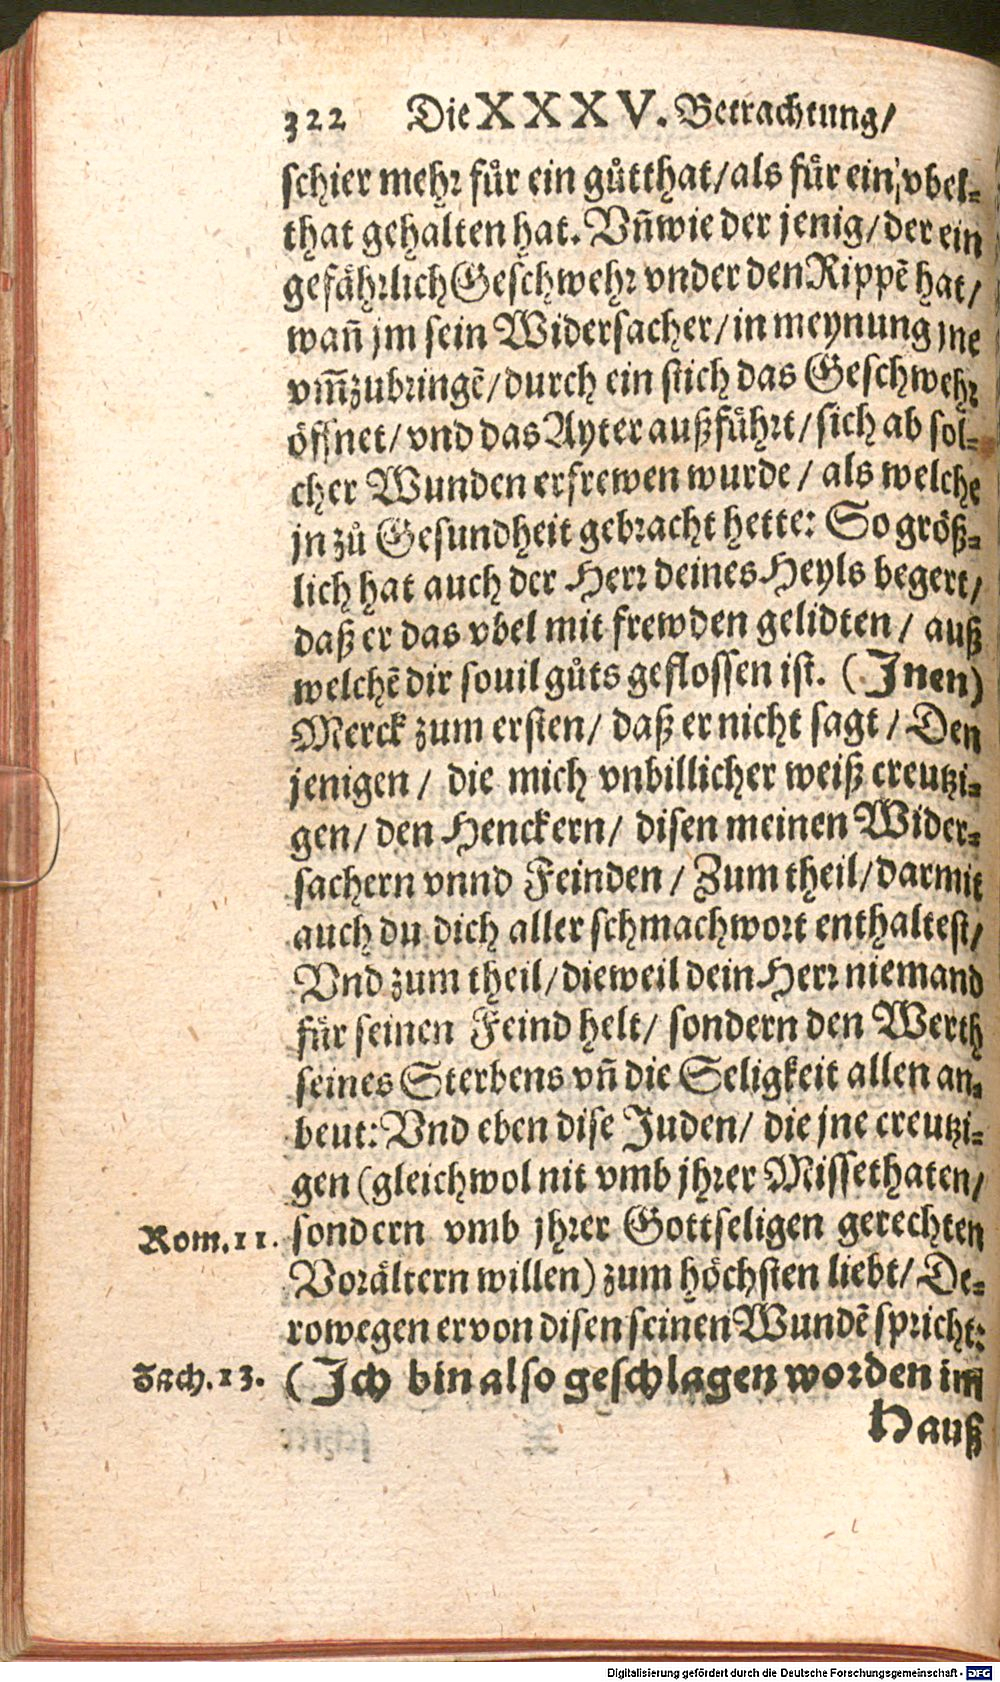 322 Die XXXV. Betrachtung/
schier mehr fuͤr ein guͤtthat/als fuͤr ein vbel-
that gehalten hat. Vñ wie der jenig/der ein
gefaͤhrlich Geschwehr vnder den Rippẽ hat/
wañ jm sein Widersacher/in meynung jne
vm̃zubringẽ/durch ein stich das Geschwehr
oͤffnet/vnd das Ayter außfuͤhrt/sich ab sol-
cher Wunden erfrewen wurde/als welche
jn zuͦ Gesundheit gebracht hette: So groͤß-
lich hat auch der Herr deines Heyls begert/
daß er das vbel mit frewden gelidten/auß
welchẽ dir souil guͦts geflossen ist. (Jnen)
Merck zum ersten/daß er nicht sagt/Den
jenigen/die mich vnbillicher weiß creutzi-
gen/den Henckern/disen meinen Wider-
sachern vnnd Feinden/Zum theil/darmit
auch du dich aller schmachwort enthaltest/
Vnd zum theil/dieweil dein Herr niemand
fuͤr seinen Feind helt/sondern den Werth
seines Sterbens vñ die Seligkeit allen an-
beut: Vnd eben dise Juden/die jne creutzi-
gen (gleichwol nit vmb jhrer Missethaten/
Rom.11. sondern vmb jhrer Gottseligen gerechten
Voraͤltern willen) zum hoͤchsten liebt/De-
rowegen er von disen seinen Wundẽ spricht:
Zach.13. (Jch bin also geschlagen worden im̃
Hauß
Digitalisierung gefördert durch die Deutsche Forschungsgemeinschaft - DFG